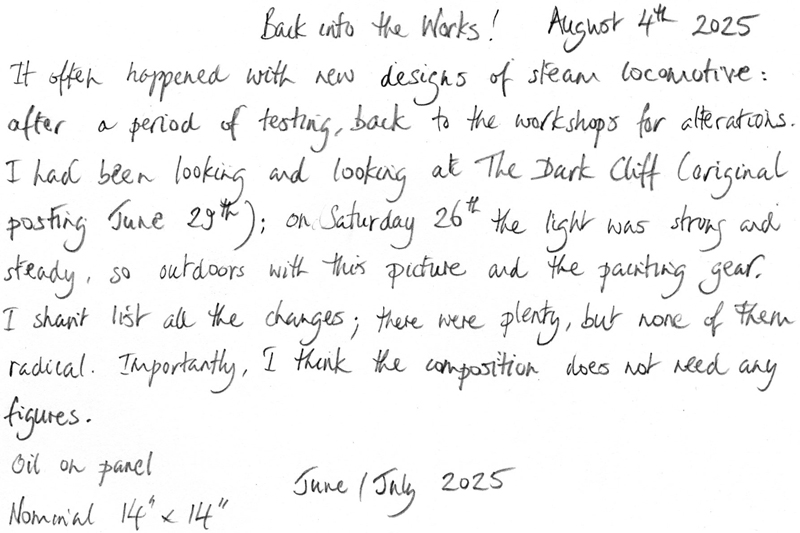 Back into the Works! August 4th 2025
It often happened with new designs of steam locomotive:
after a period of testing, back to the workshops for alterations.
I had been looking and looking at The Dark Cliff (original
posting June 29th); on Saturday 26th the light was strong and
steady, so outdoors with this picture and the painting gear.
I shan't list all the changes; there were plenty, but none of them
radical. Importantly, I think the composition does not need any
figures.
Oil on panel
June / July 2025
Nominal 14" x 14"